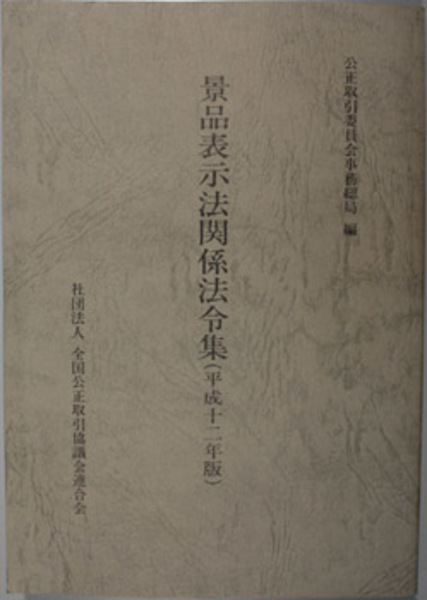 公正取引委員会事務総局 編
景品表示法関係法令集(平成十二年版)
社団法人 全国公正取引協議会連合会